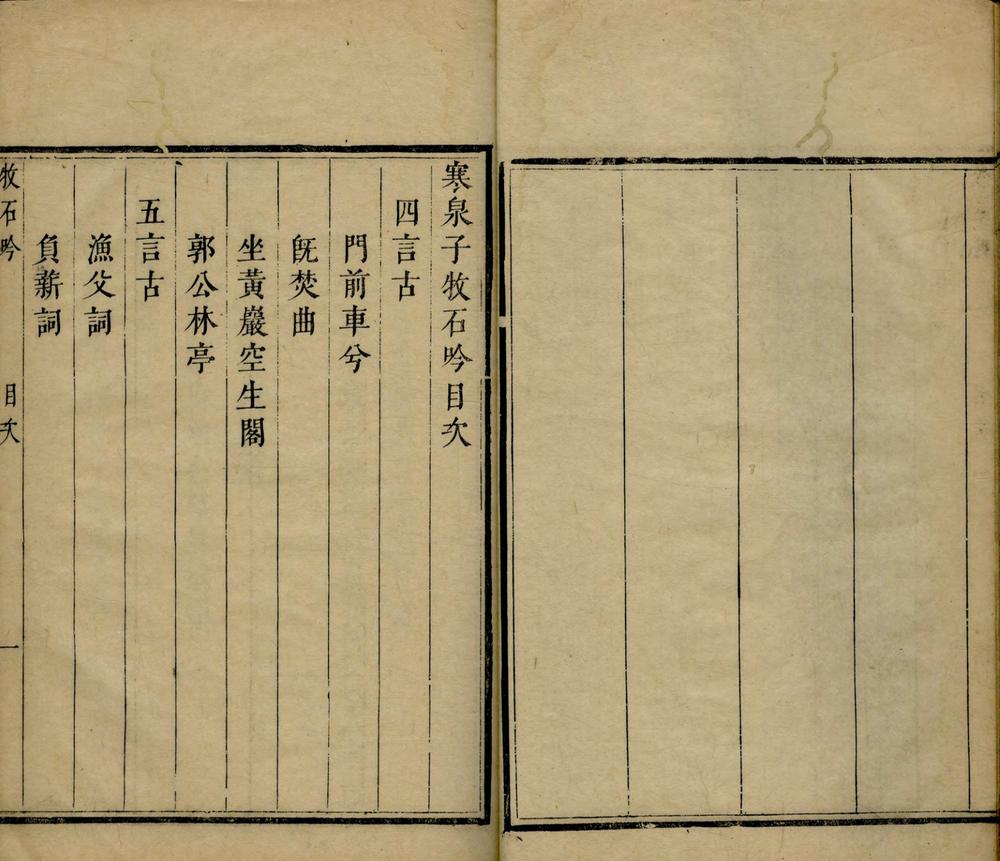 寒泉子牧石吟目次
四言古
門前車兮
旣焚曲
坐黃巖空生閣
郭公林亭
五言古
漁父詞
負薪詞
牧石吟　目次　一